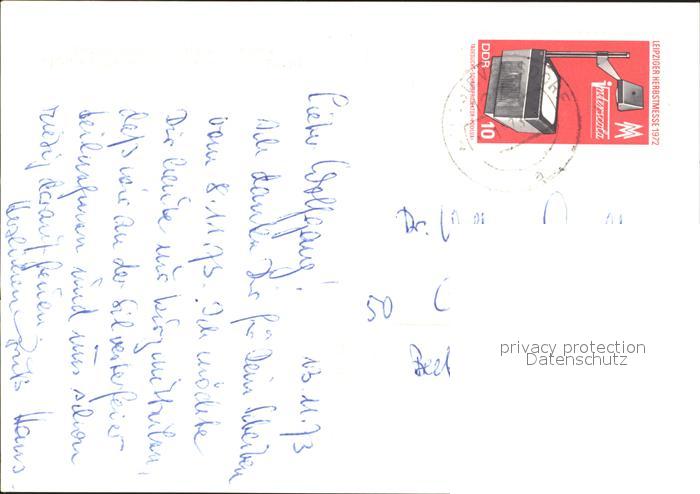 13.11.73
Lieber Wolfgang!
Ich danke Dir für Dein Schreiben
vom 8.11.73. Ich möchte
Dir heute nur kurz mitteilen,
daß wir an der Silvesterfeier
teilnehmen und uns schon
riesig darauf freuen.
Herzlichen Gruß Hans.
LEIPZIGER HERBSTMESSE 1972
interscola
MM
DDR
10
Dr.
50
privacy protection
Datenschutz